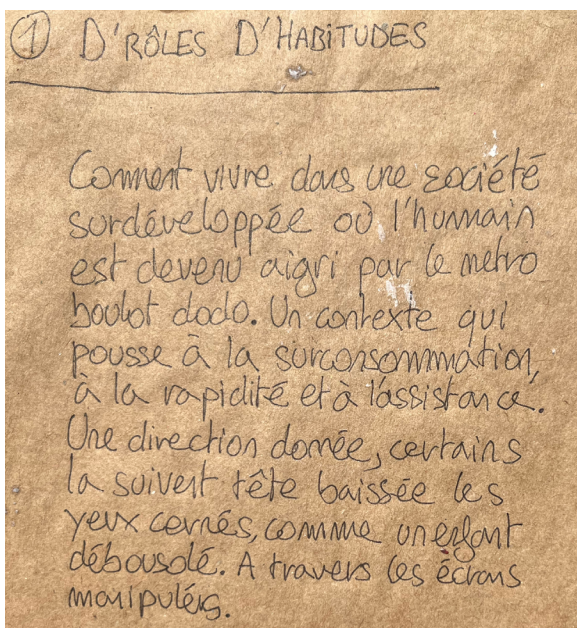 ① D'RÔLES D'HABITUDES
Comment vivre dans une société
surdéveloppée où l'humain
est devenu aigri par le metro
boulot dodo. Un contexte qui
pousse à la surconsommation,
à la rapidité et à l'assistance.
Une direction donnée, certains
la suivent tête baissée les
yeux cernés, comme un enfant
débousolé. A travers les écrans
manipulés.